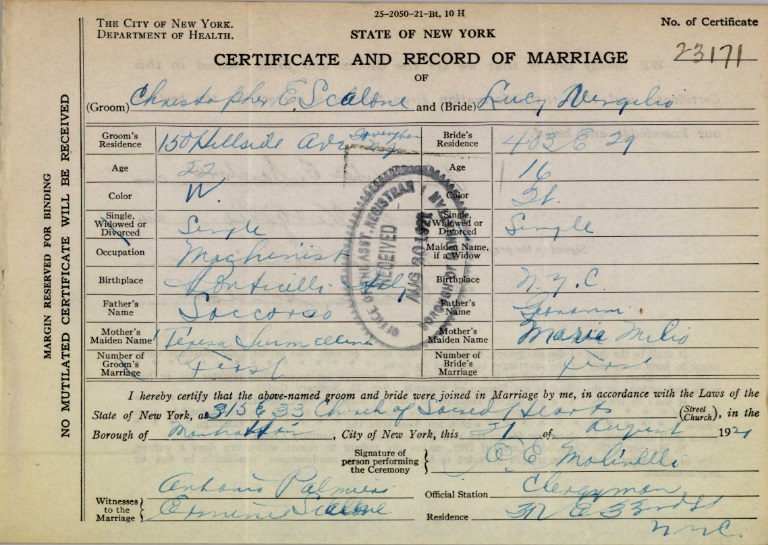 25-2050-21-Bt. 10 H
THE CITY OF NEW YORK.
DEPARTMENT OF HEALTH.
STATE OF NEW YORK
No. of Certificate
23171
CERTIFICATE AND RECORD OF MARRIAGE
OF
(Groom) Christopher E. Scalone and (Bride) Lucy Vergilio
Groom's Residence 150 Hillside Ave
Bride's Residence 403 E 29
Age 22
Age 16
Color W.
Color W.
Single, Widowed or Divorced Single
Single, Widowed or Divorced Single
Occupation Machinist
Maiden Name, if a Widow
Birthplace Monticelli Italy
Birthplace N.Y.C.
Father's Name Soccorso
Father's Name Giovanni
Mother's Maiden Name Teresa
Mother's Maiden Name Maria Milio
Number of Groom's Marriage First
Number of Bride's Marriage First
OFFICE OF THE ASST. REGISTRAR
RECEIVED
AUG 30 1921
BOROUGH OF
MARGIN RESERVED FOR BINDING
NO MUTILATED CERTIFICATE WILL BE RECEIVED
I hereby certify that the above-named groom and bride were joined in Marriage by me, in accordance with the Laws of the
State of New York, at 315 E 33 Church of Sacred Hearts (Street Church), in the
Borough of Manhattan, City of New York, this 21 of August 1921
Signature of person performing the Ceremony E Molinelli
Witnesses to the Marriage
Antonio Palmieri
Scalone
Official Station Clergyman
Residence E 33rd St
N.Y.C.